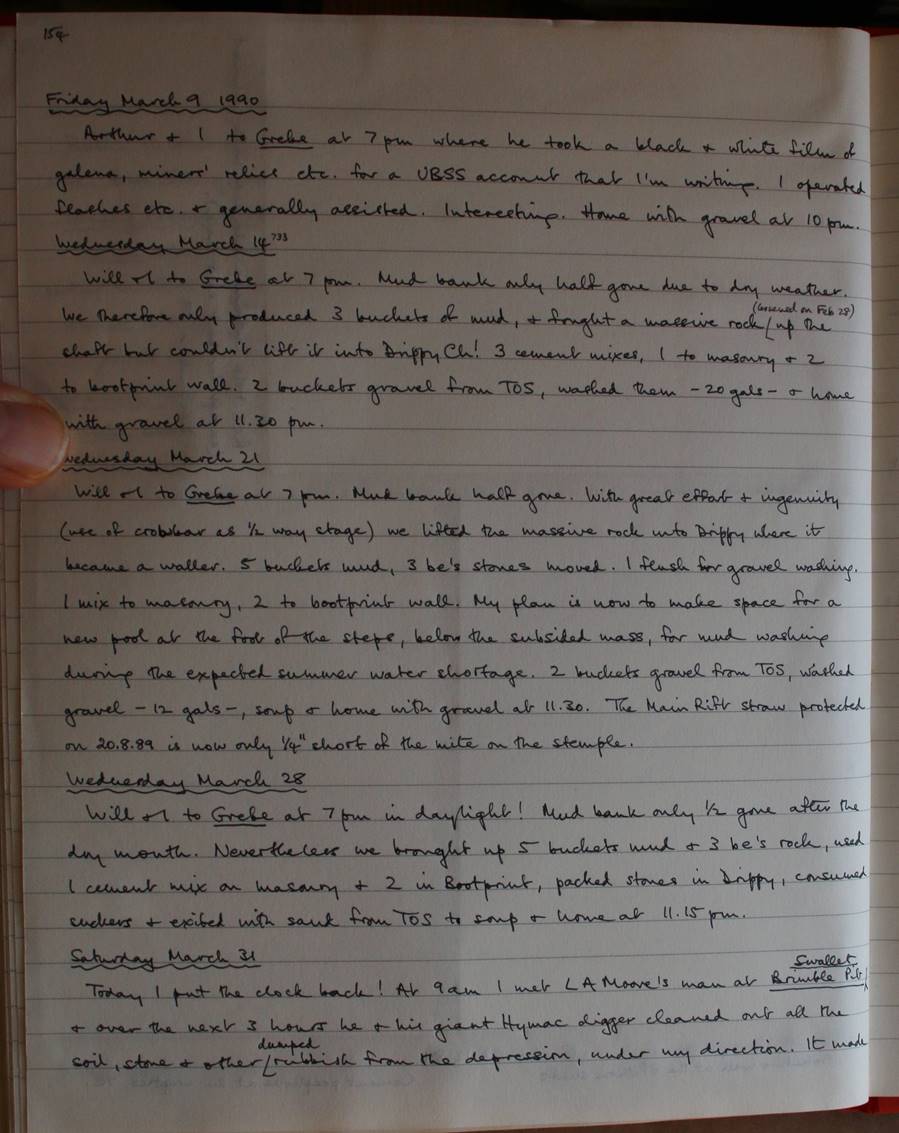 154
Friday March 9 1990
Arthur + I to Grebe at 7 pm where he took a black + white film of
galena, miners' relics etc. for a UBSS account that I'm writing. I operated
flashes etc. + generally assisted. Interesting. Home with gravel at 10 pm.
Wednesday March 14 733
Will + I to Grebe at 7 pm. Mud bank only half gone due to dry weather.
(loosened on Feb 28)
We therefore only produced 3 buckets of mud, + fought a massive rock up the
shaft but couldn't lift it into Drippy Ch! 3 cement mixes, 1 to masonry + 2
to bootprint wall. 2 buckets gravel from TOS, washed them - 20 gals - + home
with gravel at 11.30 pm.
Wednesday March 21
Will + I to Grebe at 7 pm. Mud bank half gone. With great effort + ingenuity
(use of crowbar as 1/2 way stage) we lifted the massive rock into Drippy where it
became a waller. 5 buckets mud, 3 be's stones moved. 1 flush for gravel washing.
1 mix to masonry, 2 to bootprint wall. My plan is now to make space for a
new pool at the foot of the steps, below the subsided mass, for mud washing
during the expected summer water shortage. 2 buckets gravel from TOS, washed
gravel - 12 gals -, soup + home with gravel at 11.30. The Main Rift straw protected
on 20.8.89 is now only 1/4" short of the mite on the stemple.
Wednesday March 28
Will + I to Grebe at 7 pm in daylight! Mud bank only 1/2 gone after the
dry month. Nevertheless we brought up 5 buckets mud + 3 be's rock, used
1 cement mix on masonry + 2 in Bootprint, packed stones in Drippy, consumed
suckers + exited with sack from TOS to soup + home at 11.15 pm.
Saturday March 31
Swallet
Today I put the clock back! At 9 am I met L A Moore's man at Brimble Pit
+ over the next 3 hours he + his giant Hymac digger cleaned out all the
dumped
soil, stone + other rubbish from the depression, under my direction. It made